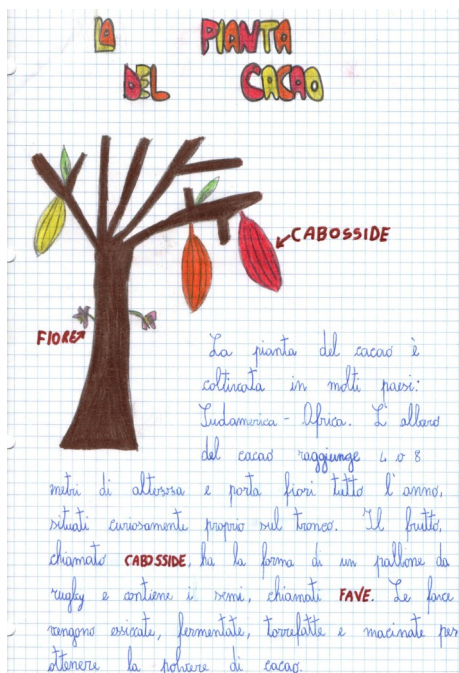 LA PIANTA
DEL CACAO
CABOSSIDE
FIORE
La pianta del cacao è
coltivata in molti paesi:
Sudamerica - Africa. L'albero
del cacao raggiunge 4 o 8
metri di altezza e porta fiori tutto l'anno,
situati curiosamente proprio sul tronco. Il frutto,
chiamato CABOSSIDE, ha la forma di un pallone da
rugby e contiene i semi, chiamati FAVE. Le fave
vengono essicate, fermentate, torrefatte e macinate per
ottenere la polvere di cacao.